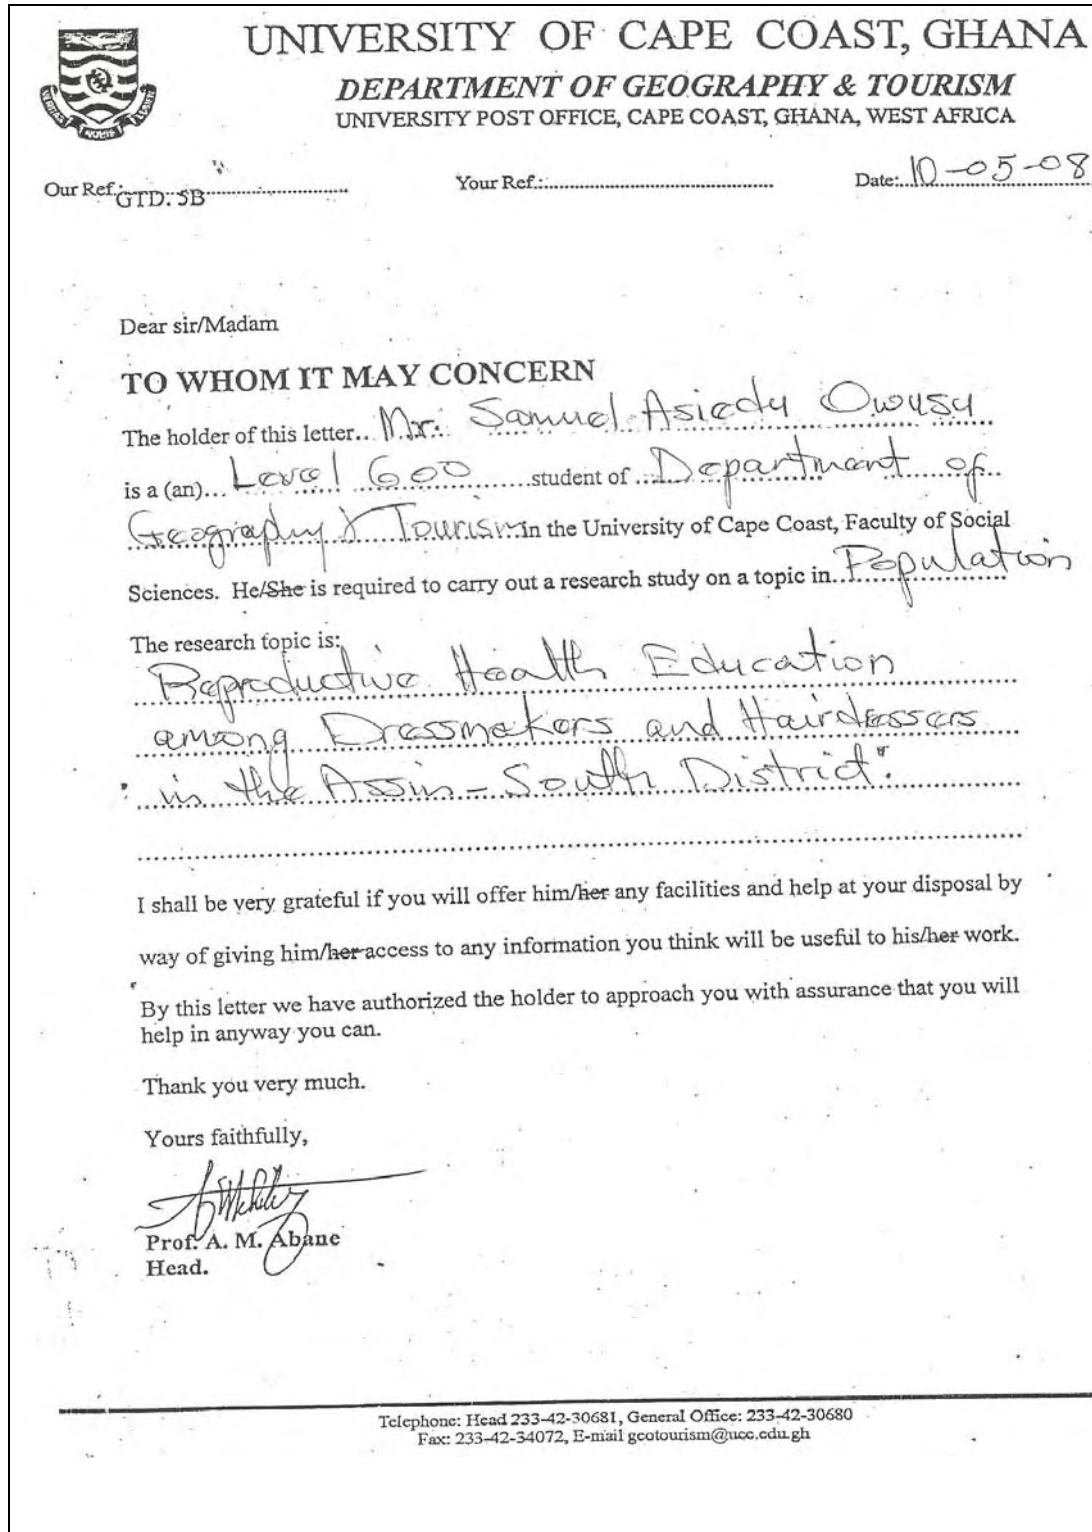 UNIVERSITY OF CAPE COAST, GHANA
DEPARTMENT OF GEOGRAPHY & TOURISM
UNIVERSITY POST OFFICE, CAPE COAST, GHANA, WEST AFRICA
VERITAS NOBIS LUMEN
Our Ref.: GTD: 5B Your Ref.: Date: 10-05-08
Dear sir/Madam
TO WHOM IT MAY CONCERN
The holder of this letter.. Mr. Samuel Asiedu Owusu
is a (an)... Level 600 student of Department of
Geography & Tourism in the University of Cape Coast, Faculty of Social
Sciences. He/She is required to carry out a research study on a topic in.. Population
The research topic is:
Reproductive Health Education
among Dressmakers and Hairdressers
in the Assin-South District".
I shall be very grateful if you will offer him/her any facilities and help at your disposal by
way of giving him/her access to any information you think will be useful to his/her work.
By this letter we have authorized the holder to approach you with assurance that you will
help in anyway you can.
Thank you very much.
Yours faithfully,
Prof. A. M. Abane
Head.
Telephone: Head 233-42-30681, General Office: 233-42-30680
Fax: 233-42-34072, E-mail geotourism@ucc.edu.gh